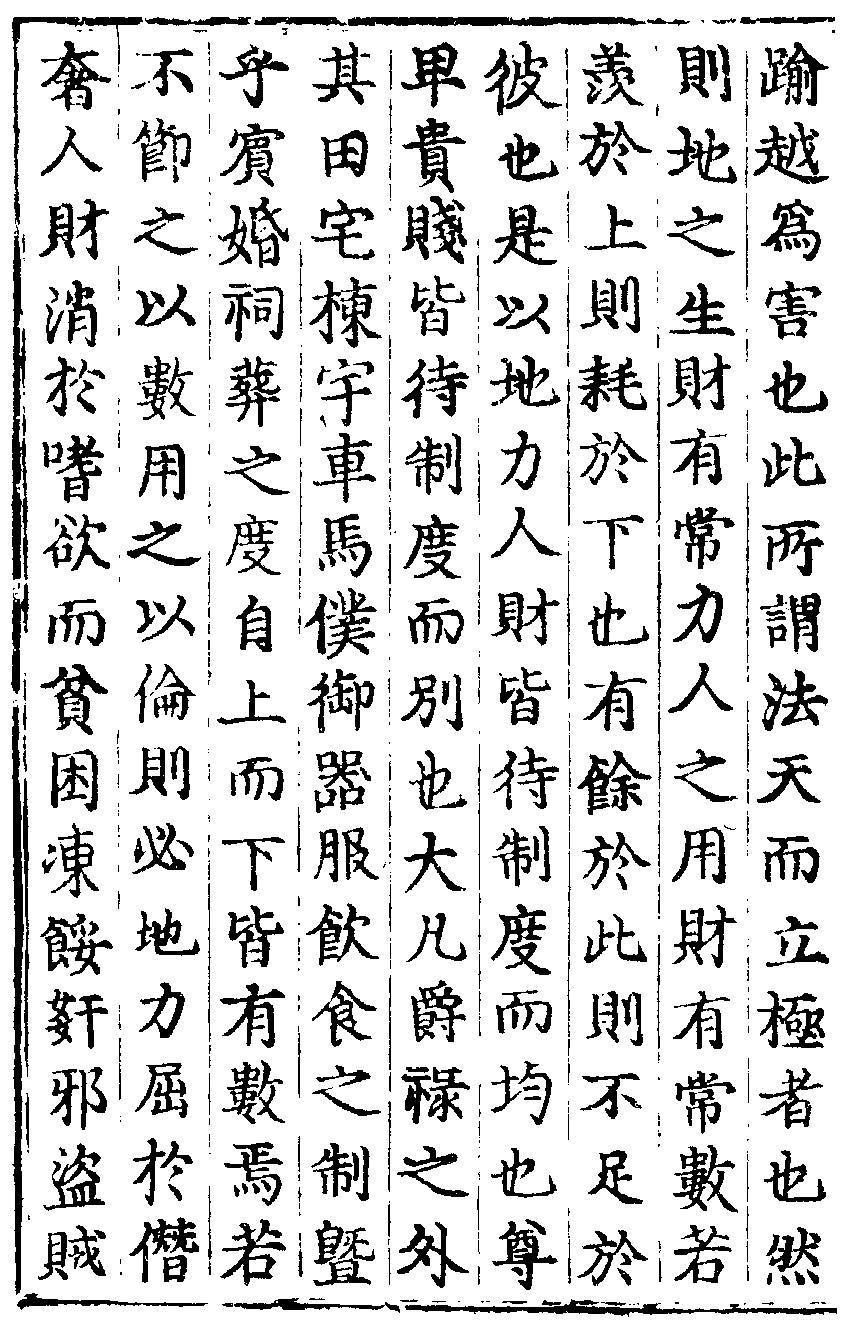 踰越爲害也此所謂法天而立極者也然
則地之生財有常力人之用財有常數若
羨於上則耗於下也有餘於此則不足於
彼也是以地力人財皆待制度而均也尊
卑貴賤皆待制度而別也大凡爵祿之外
其田宅棟宇車馬僕御器服飲食之制曁
乎賓婚祠葬之度自上而下皆有數焉若
不節之以數用之以倫則必地力屈於僭
奢人財消於嗜欲而貧困凍餒姧邪盜賊